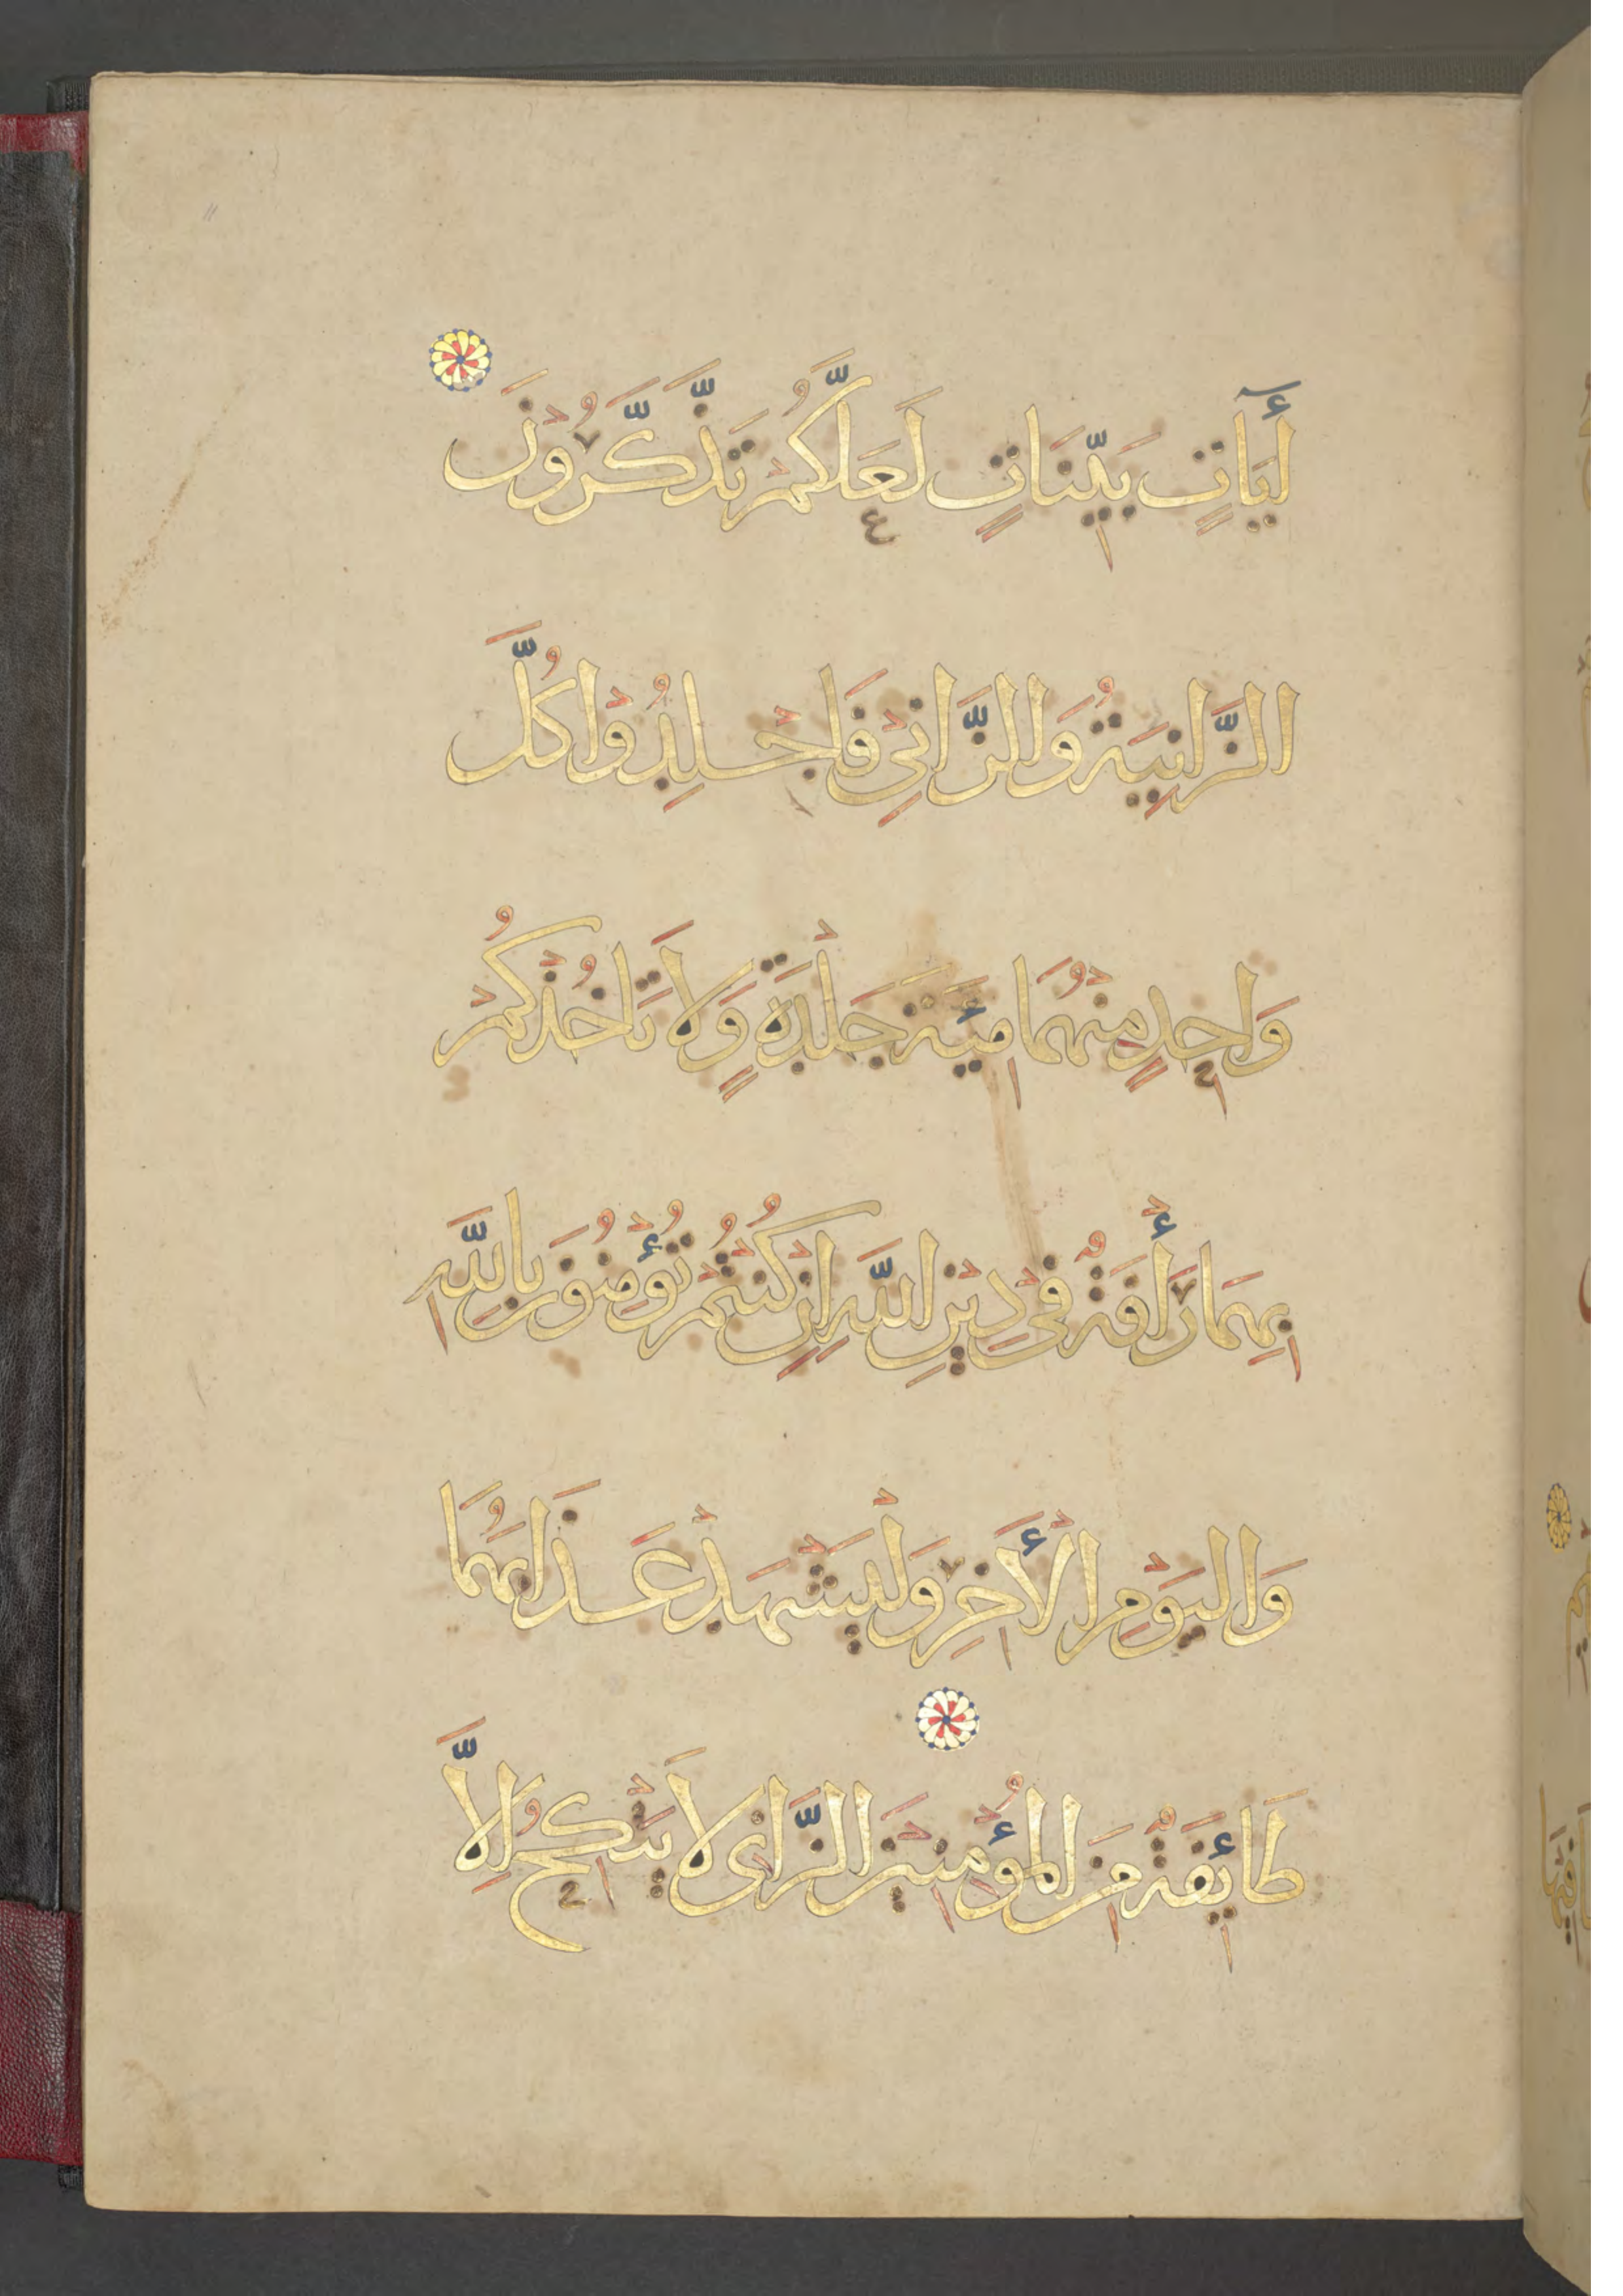 أيَاتٍ بَيِّنَاتٍ لَعَلَّكُمْ تَذَّكَّرُوْنَ
الزَّانِيَةُ وَالزَّانِيْ فَاجْلِدُوْا كُلَّ
وَاحِدٍ مِنْهُمَا مِئَةَ جَلْدَةٍ وَلَا تَاخُذْكُمْ
بِهِمَا رَأْفَةٌ فِيْ دِيْنِ اللَّهِ اِنْ كُنْتُمْ تُؤْمِنُوْنَ بِاللَّهِ
وَالْيَوْمِ الْأَخِرِ وَلْيَشْهَدْ عَذَابَهُمَا
طَائِفَةٌ مِنَ الْمُؤْمِنِيْنَ الزَّانِى لَا يَنْكِحُ اِلَّا